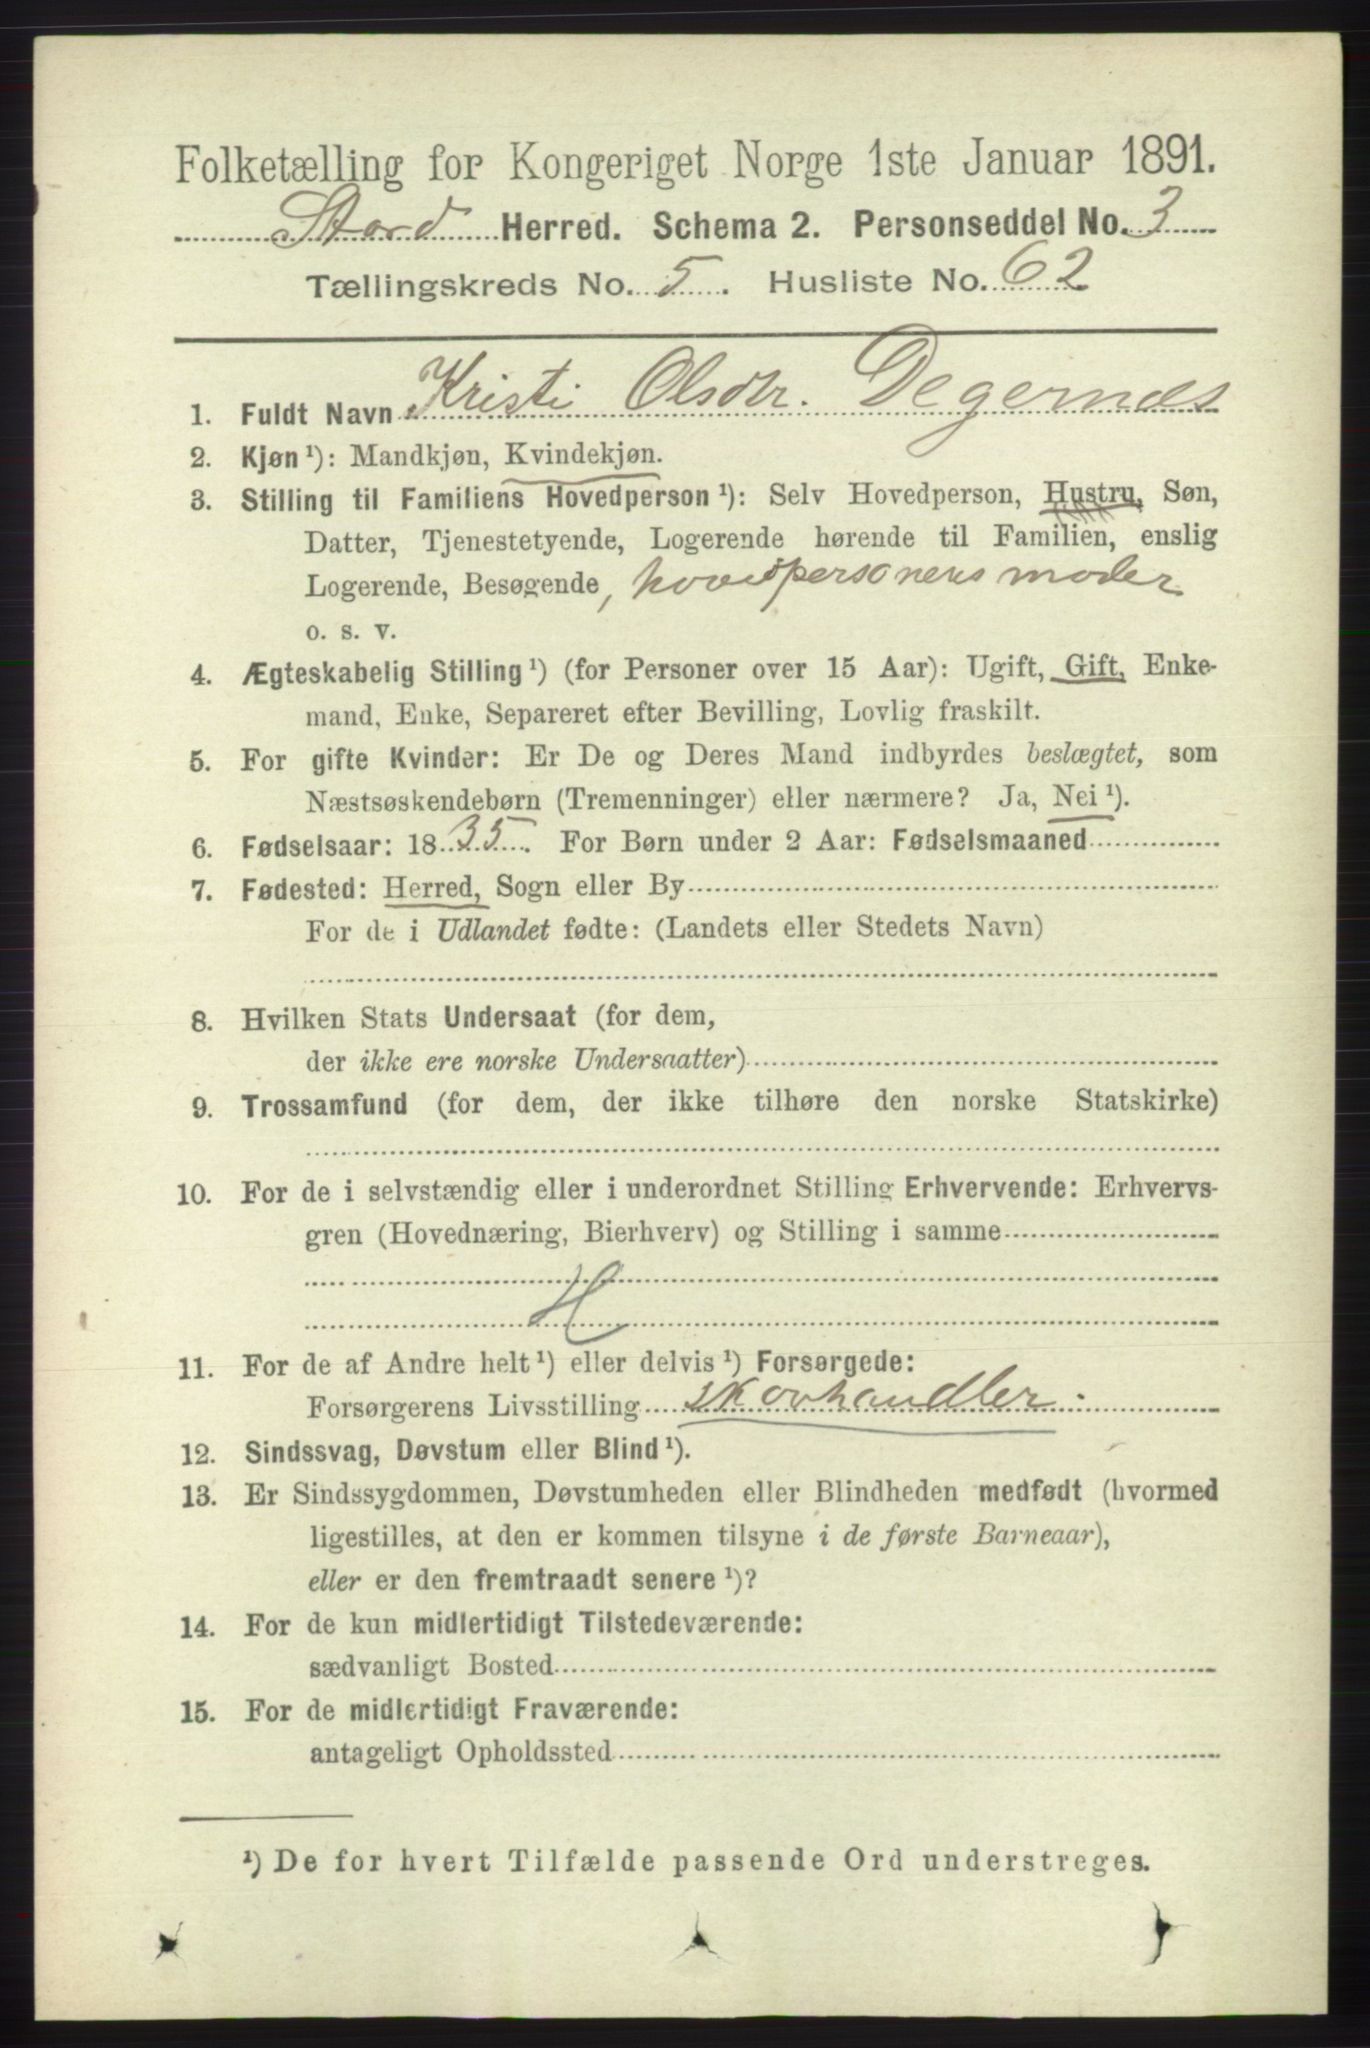 Folketælling for Kongeriget Norge 1ste Januar 1891.
Stord Herred. Schema 2. Personseddel No. 3
Tællingskreds No. 5. Husliste No. 62
1. Fuldt Navn Kristi Olsdtr. Degernæs
2. Kjøn ¹): Mandkjøn, Kvindekjøn.
3. Stilling til Familiens Hovedperson ¹): Selv Hovedperson, Hustru, Søn,
Datter, Tjenestetyende, Logerende hørende til Familien, enslig
Logerende, Besøgende, hovedpersonens moder
o. s. v.
4. Ægteskabelig Stilling ¹) (for Personer over 15 Aar): Ugift, Gift, Enke-
mand, Enke, Separeret efter Bevilling, Lovlig fraskilt.
5. For gifte Kvinder: Er De og Deres Mand indbyrdes beslægtet, som
Næstsøskendebørn (Tremenninger) eller nærmere? Ja, Nei ¹).
6. Fødselsaar: 1835. For Børn under 2 Aar: Fødselsmaaned
7. Fødested: Herred, Sogn eller By
For de i Udlandet fødte: (Landets eller Stedets Navn)
8. Hvilken Stats Undersaat (for dem,
der ikke ere norske Undersaatter)
9. Trossamfund (for dem, der ikke tilhøre den norske Statskirke)
10. For de i selvstændig eller i underordnet Stilling Erhvervende: Erhvervs-
gren (Hovednæring, Bierhverv) og Stilling i samme
H
11. For de af Andre helt ¹) eller delvis ¹) Forsørgede:
Forsørgerens Livsstilling skovhandler.
12. Sindssvag, Døvstum eller Blind ¹).
13. Er Sindssygdommen, Døvstumheden eller Blindheden medfødt (hvormed
ligestilles, at den er kommen tilsyne i de første Barneaar),
eller er den fremtraadt senere ¹)?
14. For de kun midlertidigt Tilstedeværende:
sædvanligt Bosted
15. For de midlertidigt Fraværende:
antageligt Opholdssted
¹) De for hvert Tilfælde passende Ord understreges.